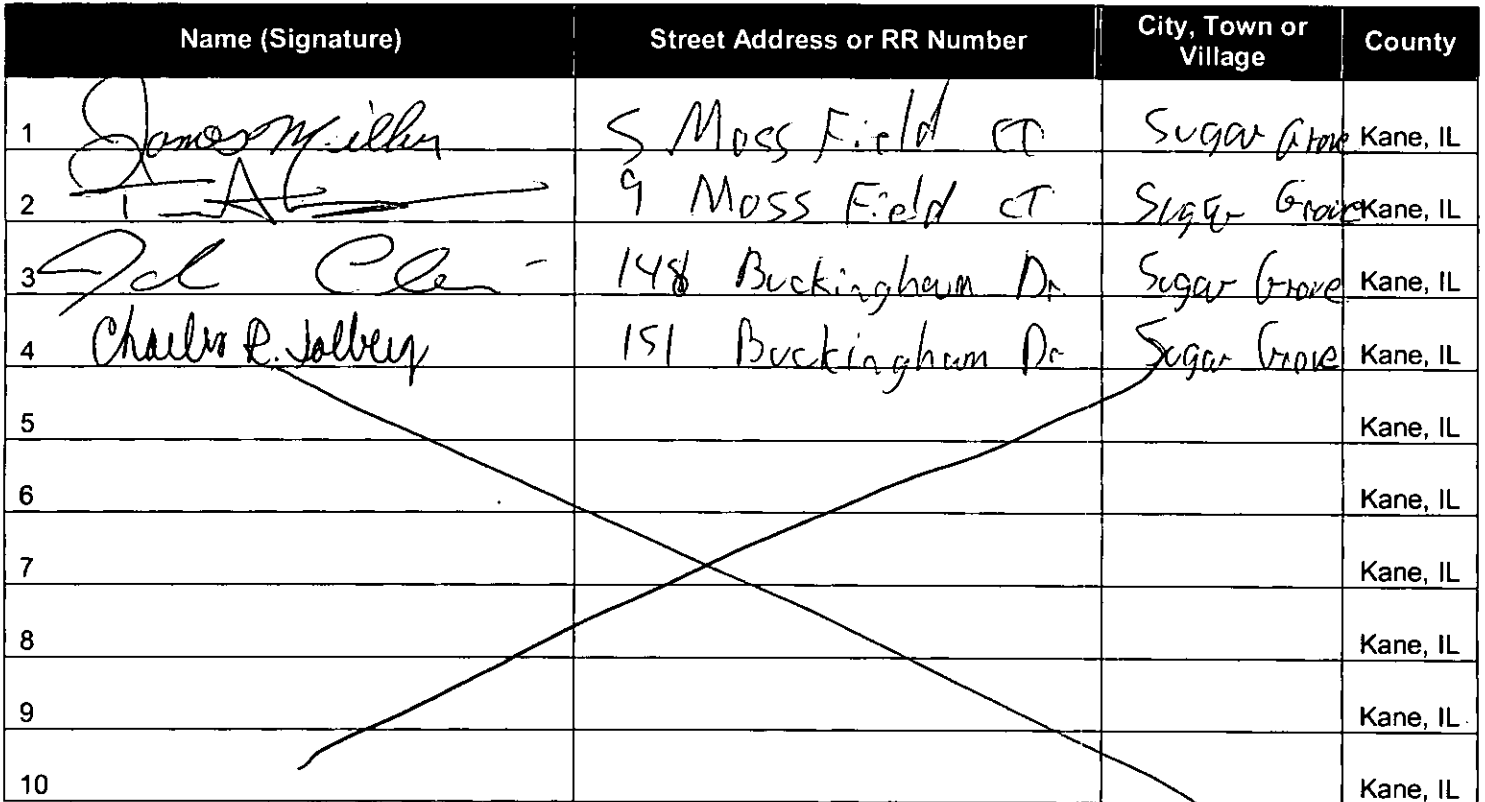 Name (Signature) Street Address or RR Number City, Town or Village County
1 James Miller 5 Moss Field CT Sugar Grove Kane, IL
2 9 Moss Field CT Sugar Grove Kane, IL
3 148 Buckingham Dr. Sugar Grove Kane, IL
4 Charles R. 151 Buckingham Dr Sugar Grove Kane, IL
5 Kane, IL
6 Kane, IL
7 Kane, IL
8 Kane, IL
9 Kane, IL
10 Kane, IL